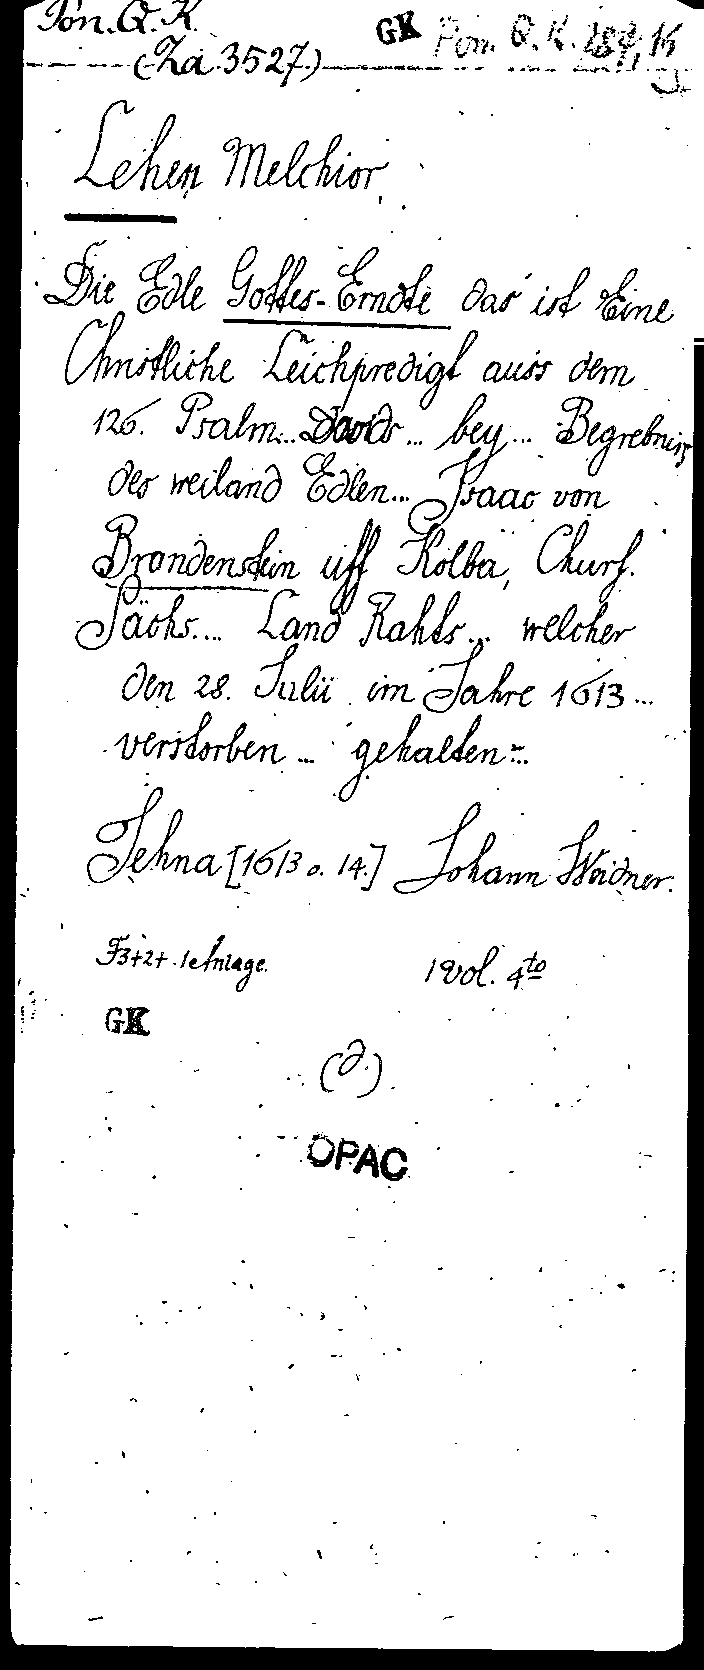 Pon. Q. K. GK Pon. Q. K.
(Za 3527)
Lehen Melchior
Die Edle Gottes-Erndte das ist Eine
Christliche Leichpredigt auss dem
126. Psalm... Davids... bey... Begrebnis
des weiland Edlen... Isaac von
Brandenstein uff Kolba, Churf.
Sächs.... Land Rahts... welcher
den 28. Julii im Jahre 1613...
verstorben... gehalten...
Jehna [1613 o. 14.] Johann Weidner.
1 vol. 4to
GK
(d.)
OPAC